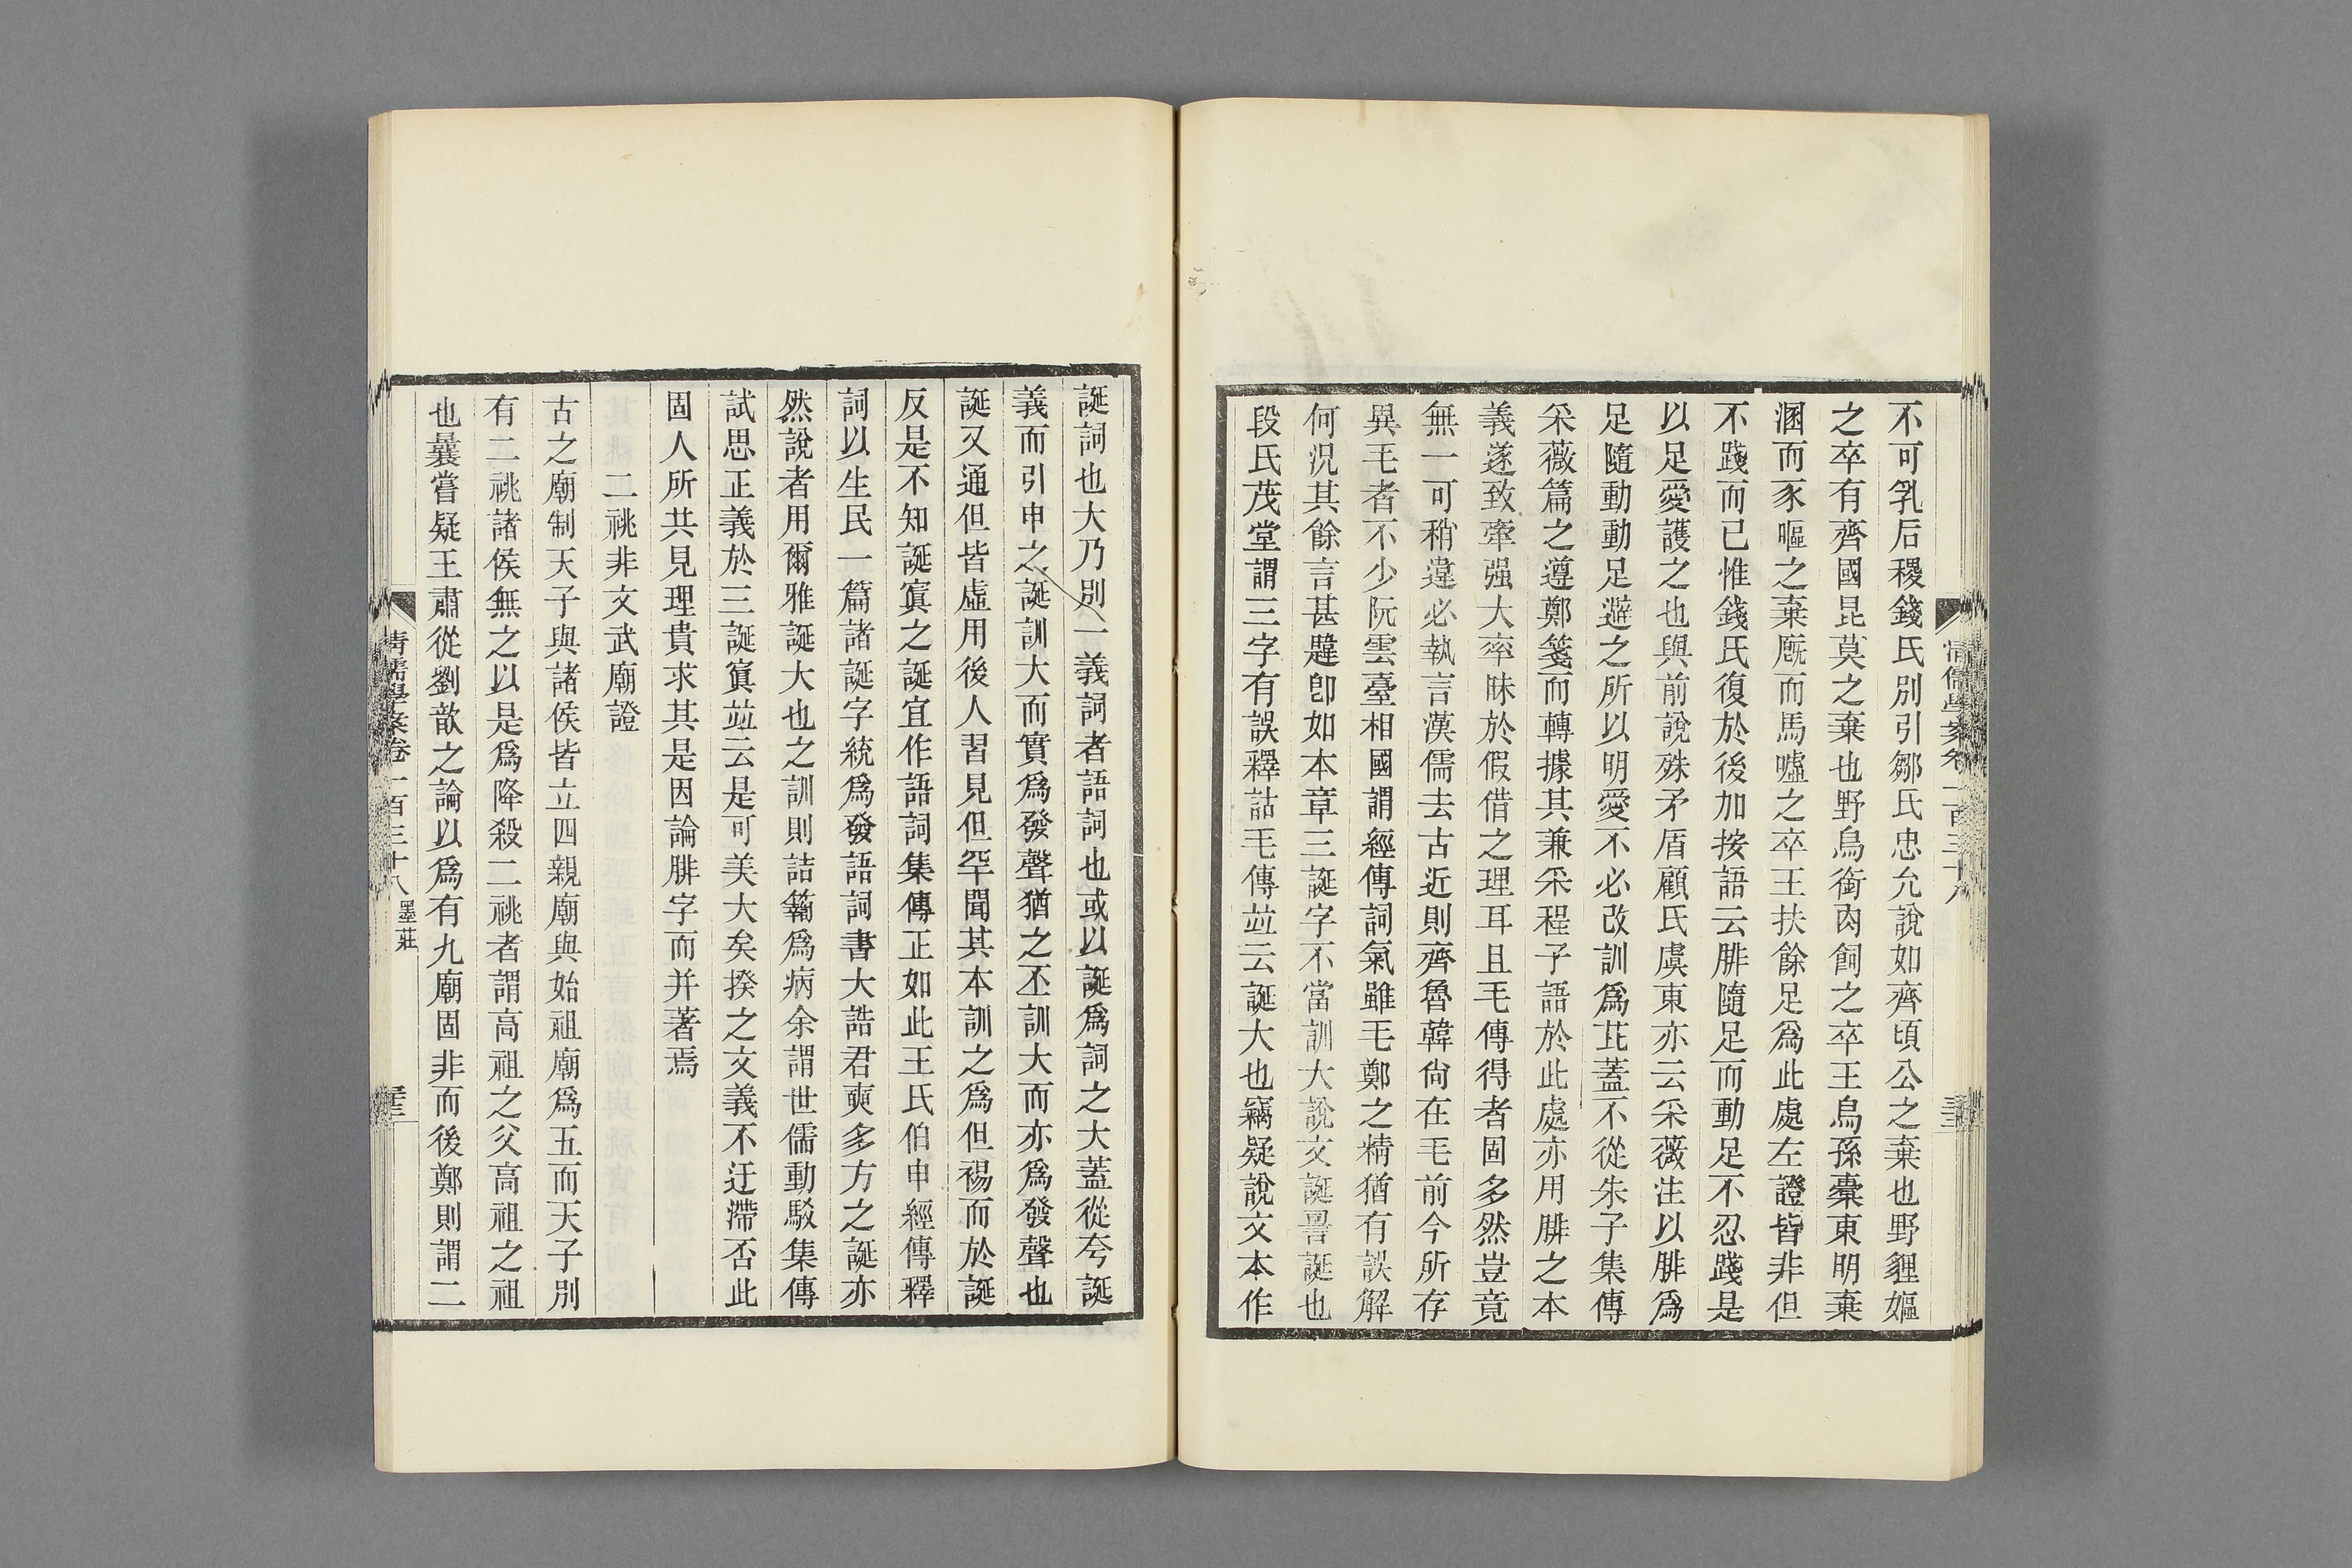 不可乳后稷錢氏別引鄒氏忠允說如齊頃公之棄也野貍嫗
之卒有齊國昆莫之棄也野鳥銜肉飼之卒王烏孫槖東明棄
溷而豕嘔之棄廐而馬嘘之卒王扶餘足爲此處左證皆非但
不踐而已惟錢氏復於後加按語云腓隨足而動足不忍踐是
以足愛護之也與前說殊矛盾顧氏虞東亦云采薇注以腓爲
足隨動動足避之所以明愛不必改訓爲芘蓋不從朱子集傳
采薇篇之遵鄭箋而轉據其兼采程子語於此處亦用腓之本
義遂致牽强大率昧於假借之理耳且毛傳得者固多然豈竟
無一可稍違必執言漢儒去古近則齊魯韓尙在毛前今所存
異毛者不少阮雲臺相國謂經傳詞氣雖毛鄭之精猶有誤解
何況其餘言甚韙卽如本章三誕字不當訓大說文誕詈誕也
段氏茂堂謂三字有誤釋詁毛傳竝云誕大也竊疑說文本作
清儒學案卷二百三十八
誕詞也大乃別一義詞者語詞也或以誕爲詞之大蓋從夸誕
義而引申之誕訓大而實爲發聲猶之丕訓大而亦爲發聲也
誕又通但皆虛用後人習見但罕聞其本訓之爲但裼而於誕
反是不知誕寘之誕宜作語詞集傳正如此王氏伯申經傳釋
詞以生民一篇諸誕字統爲發語詞書大誥君奭多方之誕亦
然說者用爾雅誕大也之訓則詰籥爲病余謂世儒動駁集傳
試思正義於三誕寘竝云是可美大矣揆之文義不迂滯否此
固人所共見理貴求其是因論腓字而并著焉
二祧非文武廟證
古之廟制天子與諸侯皆立四親廟與始祖廟爲五而天子別
有二祧諸侯無之以是爲降殺二祧者謂高祖之父高祖之祖
也曩嘗疑王肅從劉歆之論以爲有九廟固非而後鄭則謂二
清儒學案卷一百三十八 墨莊